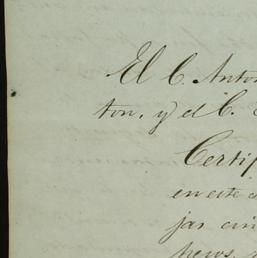 El C. Anton
ton, y el C.
Certif
en este
jas cin